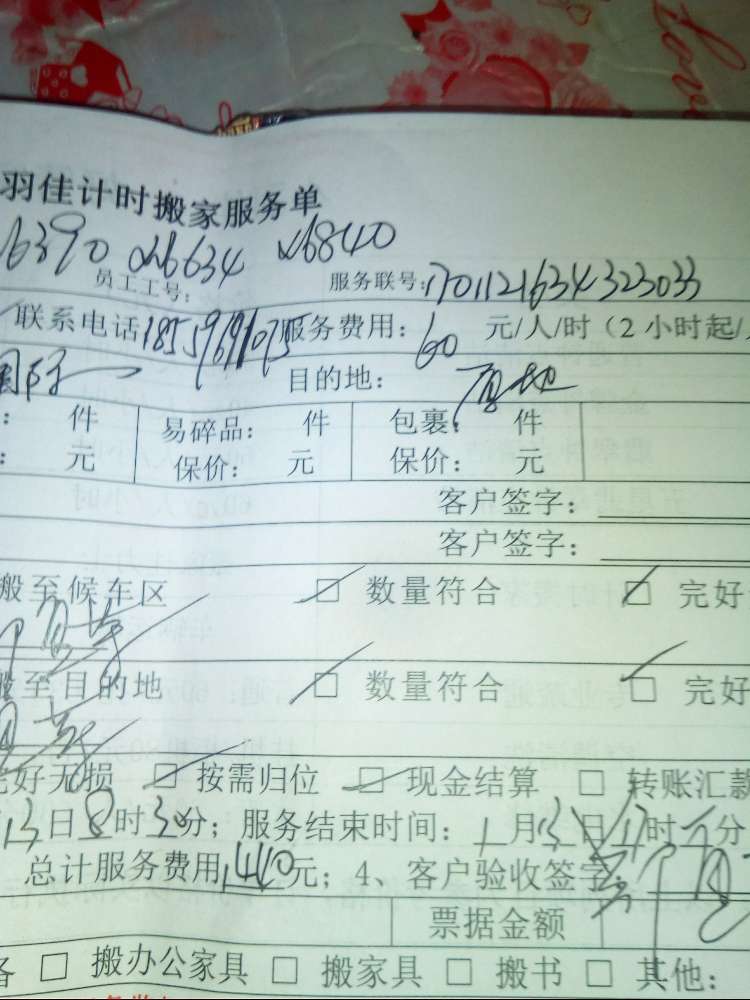 羽佳计时搬家服务单
16390 26634 26840
员工工号： 服务联号：1701121634323033
联系电话 服务费用：60 元/人/时（2小时起/
国际 目的地：原地
： 件 易碎品： 件 包裹： 件
： 元 保价： 元 保价： 元
客户签字：
客户签字：
搬至候车区 □ 数量符合 □ 完好
搬至目的地 □ 数量符合 □ 完好
完好无损 □ 按需归位 □ 现金结算 □ 转账汇款
13日8时30分；服务结束时间：1月13日17时 分
总计服务费用1440元；4、客户验收签字
票据金额
备 □ 搬办公家具 □ 搬家具 □ 搬书 □ 其他：